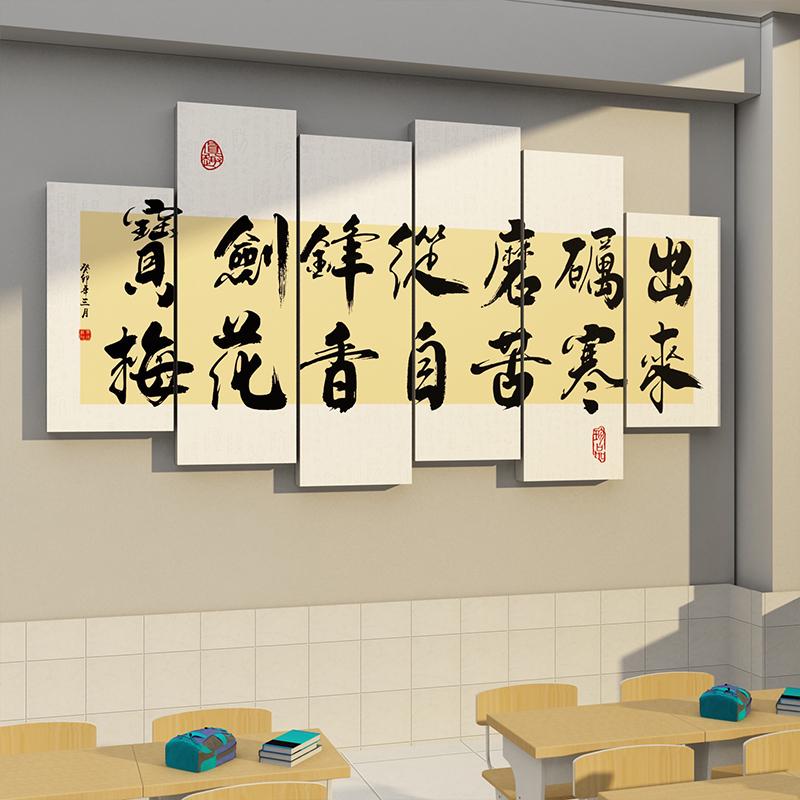 寶劍鋒從磨礪出
梅花香自苦寒來
癸卯年三月